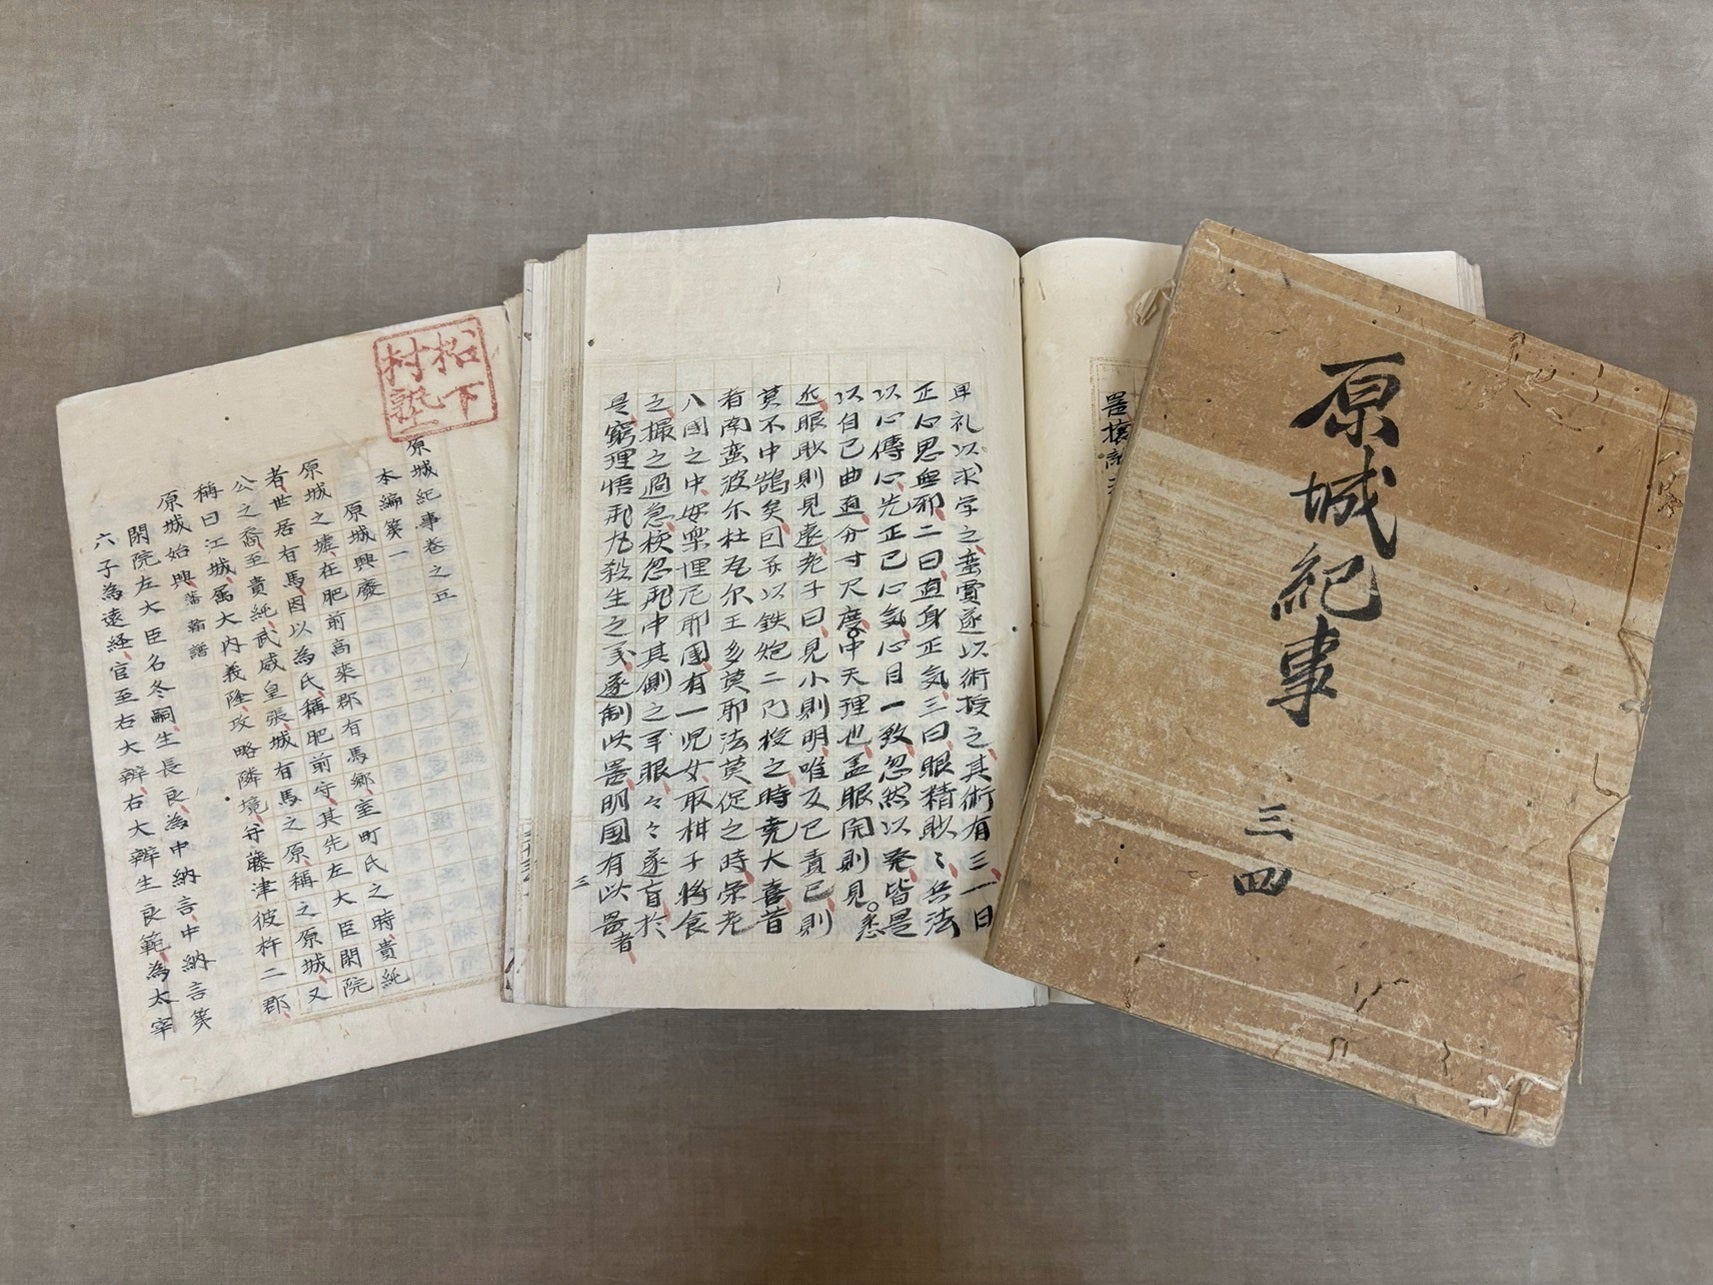 松下
村塾
原城紀事卷之五
本編第一
原城興廢
原城之墟在肥前高来郡有馬郷室町氏之時貴純
者世居有馬因以為氏稱肥前守其先左大臣閑院
公之裔至貴純武威皇張城有馬之原稱之原城又
稱曰江城属大内義隆攻略隣境守藤津彼杵二郡
原城始興藩翰譜
閑院左大臣名冬嗣生長良為中納言中納言第
六子為遠経官至右大辨右大辨生良範為太宰
卑礼以求学之蛮賈遂以術授之其術有三一曰
正心思無邪二曰直身正気三曰眼精眇々兵法
以心傳心先正己心気心目一致忽然以発皆是
以自己曲直分寸尺度中天理也孟眼開則見悉
近眼眇則見遠老子曰見小則明唯反己責己則
莫不中鵠矣曰示以鉄炮二乃授之時尭大喜昔
者南蛮波尔杜瓦尔王多莫耶法莫促之時栄老
八國之中安樂俚厄耶國有一児女取棋子将食
之撮之過急校忽飛中其側之平眼々々遂盲於
是窮理悟飛丸殺生之機遂制此器明国有此器者
三
原城紀事
三四